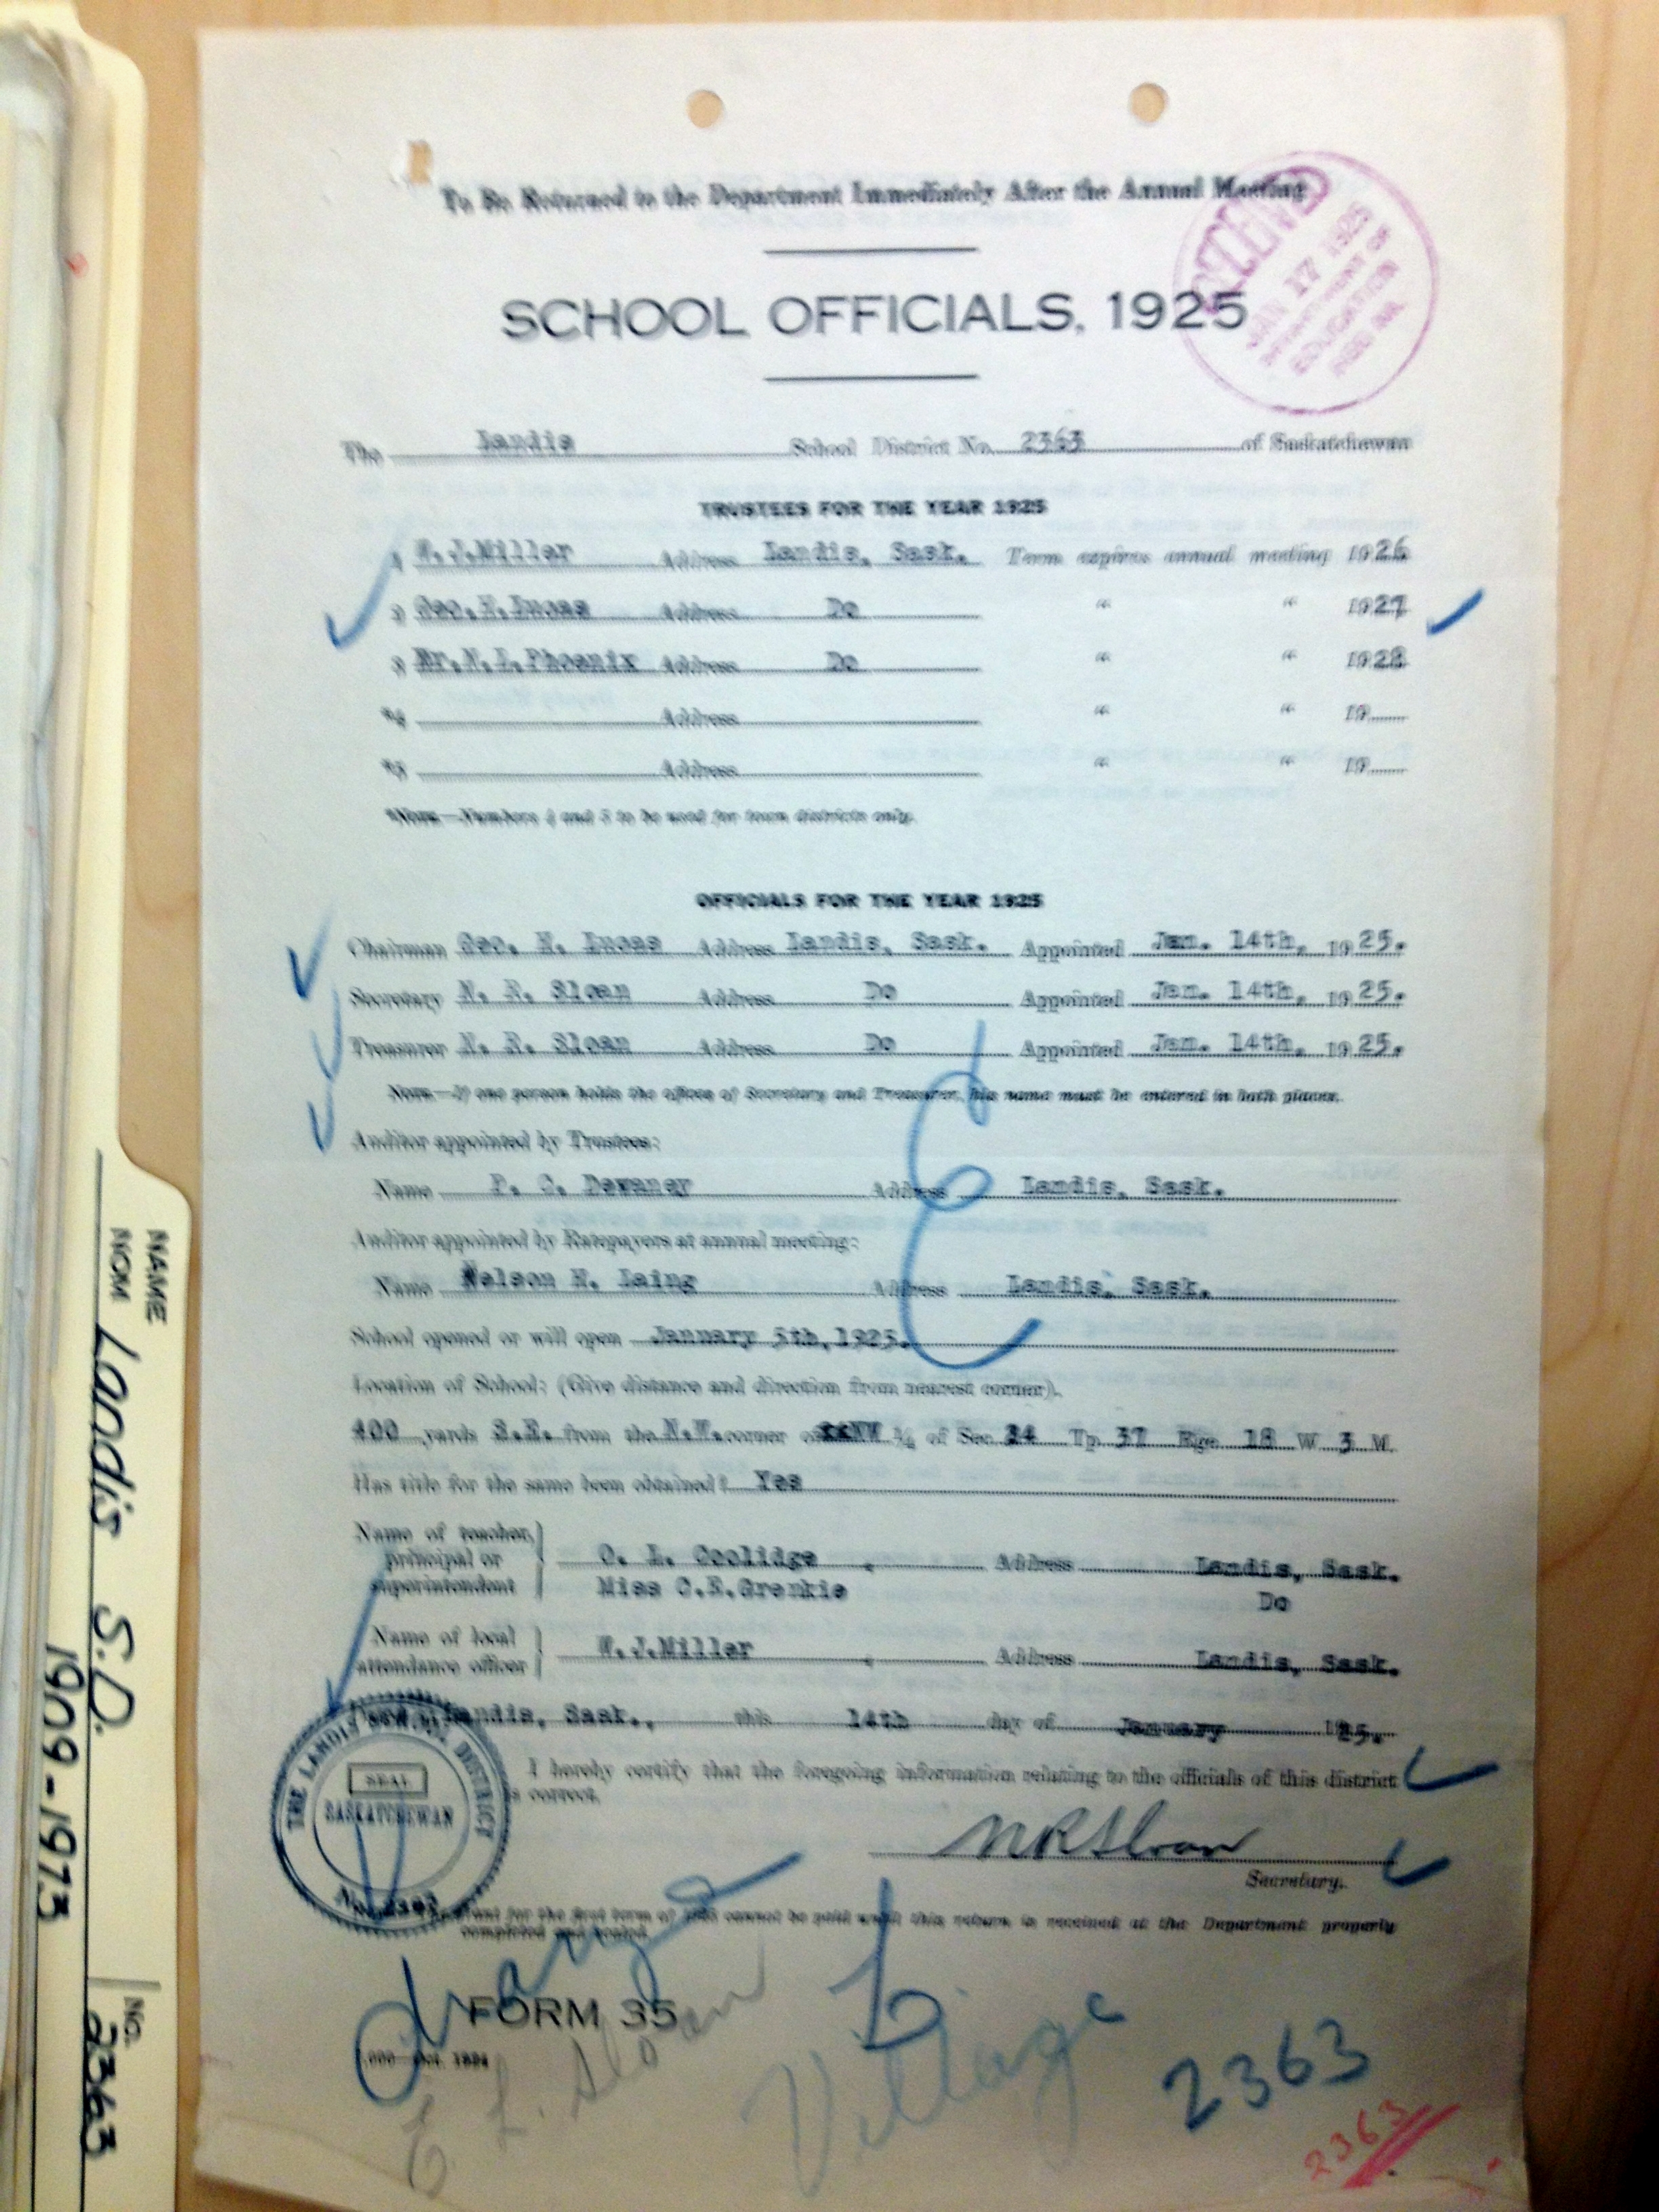 To Be Returned to the Department Immediately After the Annual Meeting
RECEIVED
JAN 17 1925
DEPARTMENT OF
EDUCATION
REGINA
SCHOOL OFFICIALS, 1925
The Landis School District No. 2363 of Saskatchewan
TRUSTEES FOR THE YEAR 1925
1 W.J.Miller Address Landis, Sask. Term expires annual meeting 1926
2 Geo.H.Lucas Address Do " " 1927
3 Mr.N.L.Phoenix Address Do " " 1928
*4 Address " " 19
*5 Address " " 19
*NOTE—Numbers 4 and 5 to be used for town districts only.
OFFICIALS FOR THE YEAR 1925
Chairman Geo. H. Lucas Address Landis, Sask. Appointed Jan. 14th, 1925.
Secretary N. R. Sloan Address Do Appointed Jan. 14th, 1925.
Treasurer N. R. Sloan Address Do Appointed Jan. 14th, 1925.
NOTE—If one person holds the offices of Secretary and Treasurer, his name must be entered in both places.
Auditor appointed by Trustees:
Name P. C. Dewaney Address Landis, Sask.
Auditor appointed by Ratepayers at annual meeting:
Name Nelson H. Laing Address Landis, Sask.
School opened or will open January 5th,1925.
Location of School: (Give distance and direction from nearest corner).
400 yards S.E. from the N.W. corner of NW ¼ of Sec 24 Tp. 37 Rge 18 W 3 M.
Has title for the same been obtained? Yes
Name of teacher, principal or superintendent
O. L. Coolidge Address Landis, Sask.
Miss C.E.Grenkie Do
Name of local attendance officer W.J.Miller Address Landis, Sask.
Landis, Sask., this 14th day of January 1925.
I hereby certify that the foregoing information relating to the officials of this district
is correct.
THE LANDIS SCHOOL DISTRICT
SEAL
SASKATCHEWAN
No. 2363
N R Sloan
Secretary.
for the first term of 1925 cannot be paid until this return is received at the Department properly
completed and sealed.
FORM 35
Oct. 1924
L. Sloan
Village
2363
2363
NAME
NOM Landis S.D.
1909-1973
NO. 2363